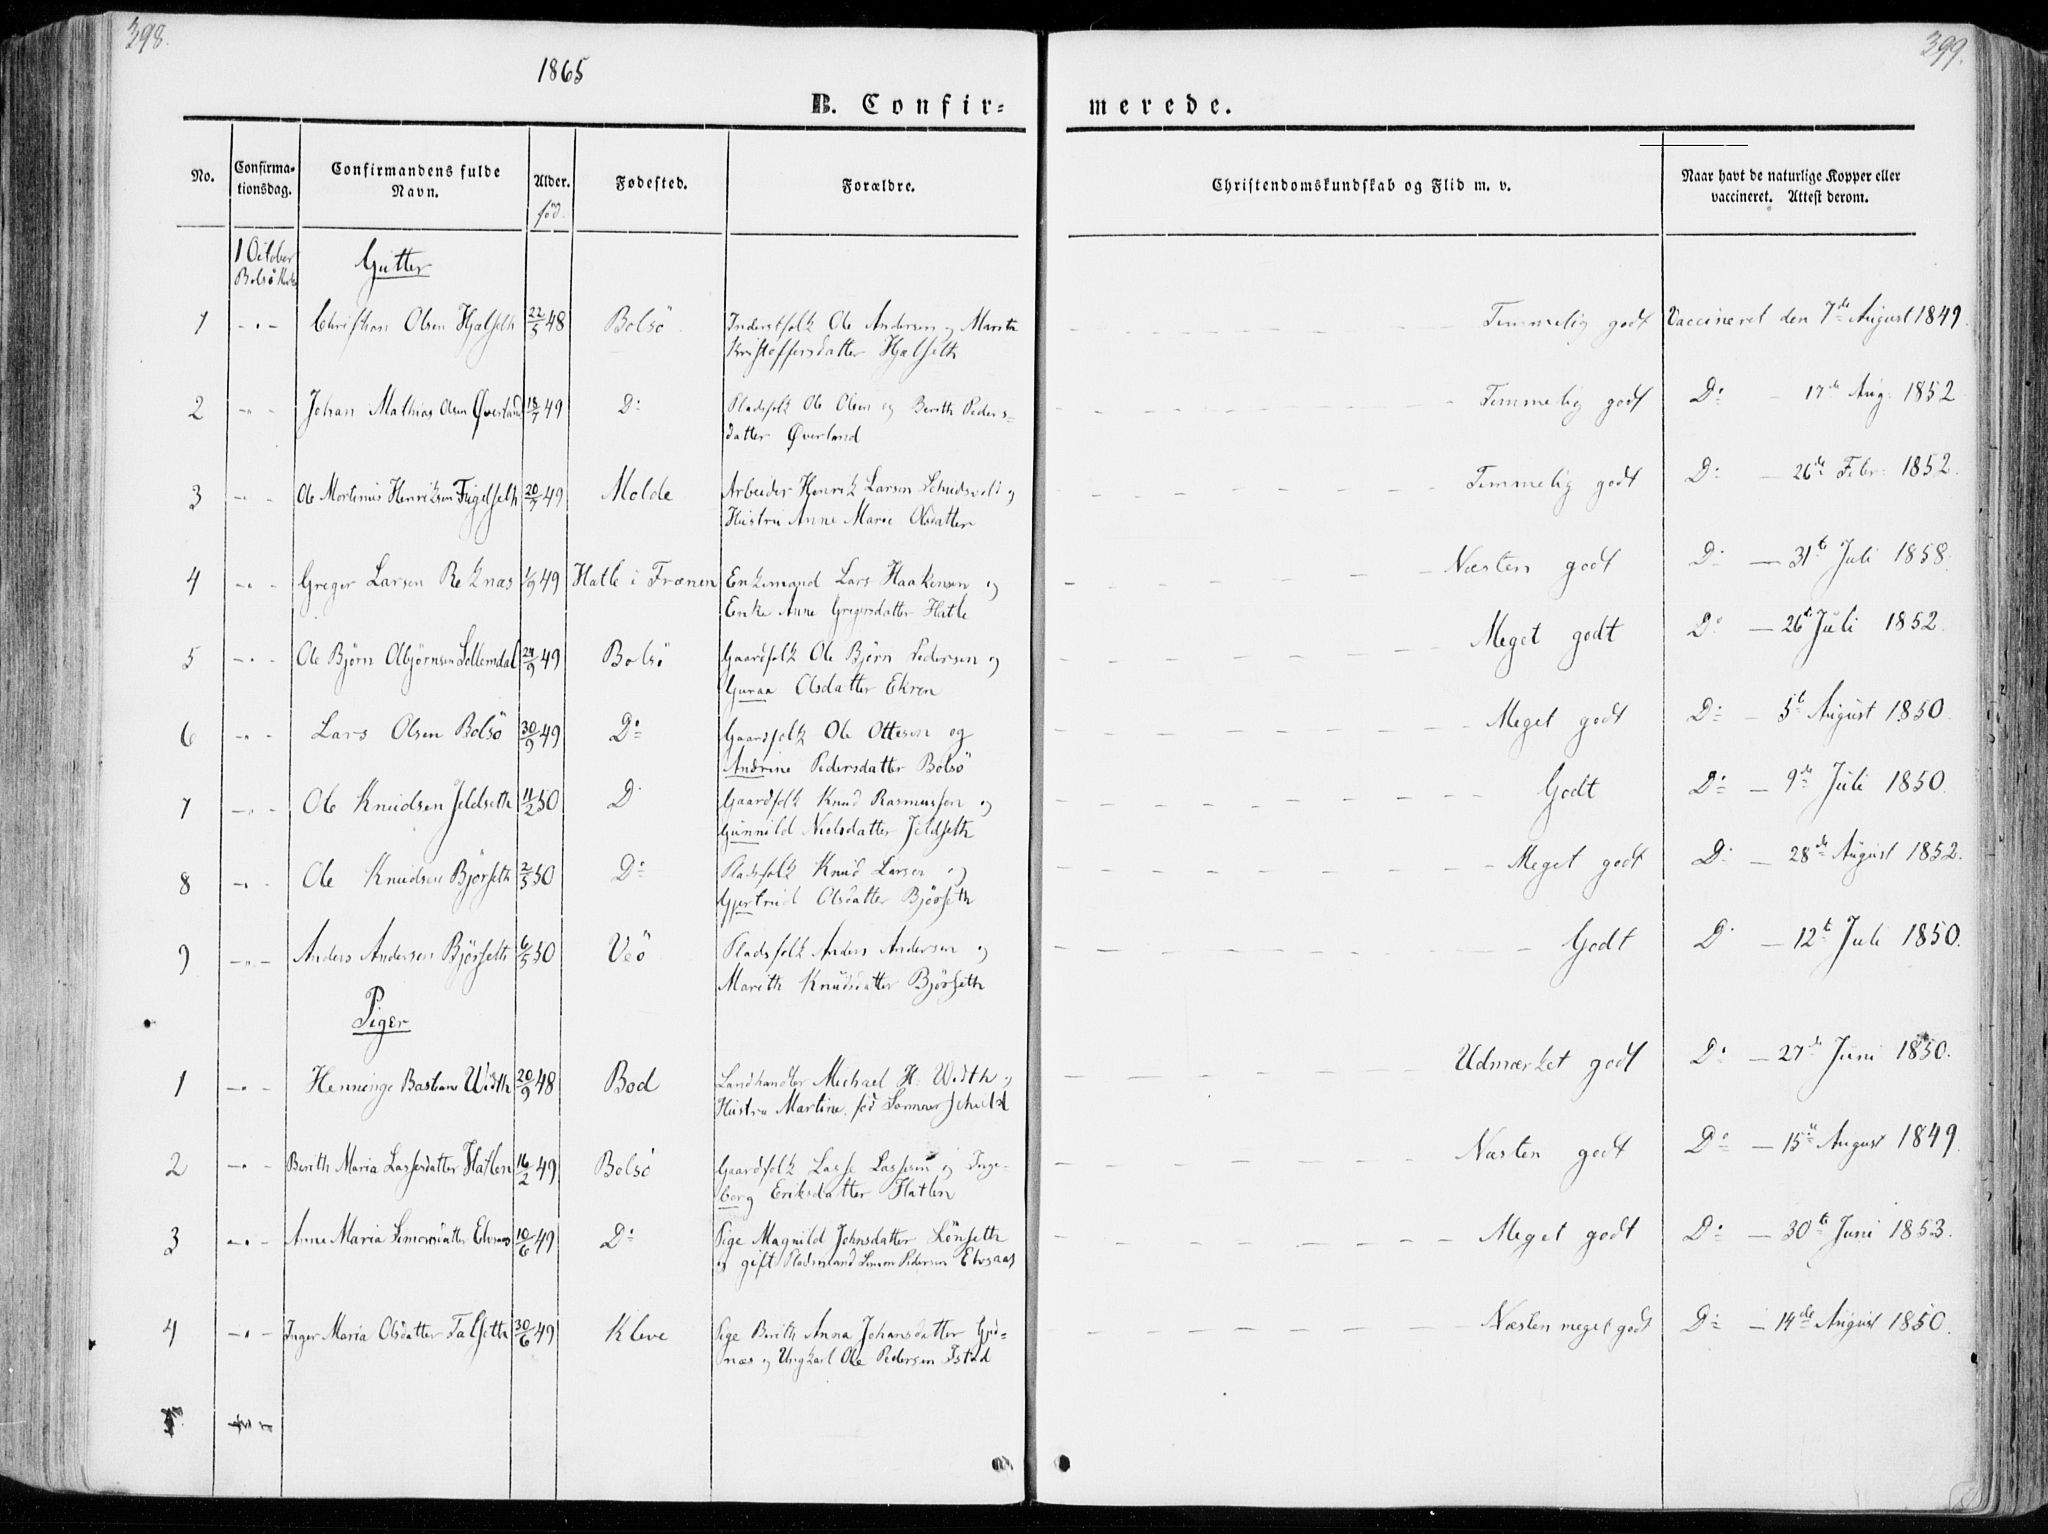 398.
399.
1865
B. Confir= merede.
No.
Confirma-
tionsdag.
Confirmandens fulde
Navn.
Alder.
fød.
Fødested.
Forældre.
Christendomskundskab og Flid m. v.
Naar havt de naturlige Kopper eller
vaccineret. Attest derom.
1 October
Bolsö
Gutter
1 - " - Christian Olsen Hjelseth 22/5 48 Bolsö Inderstfolk Ole Andersen og Marith Temmelig godt Vaccineret den 7de August 1849.
Kristoffersdatter Hjelseth
2 - " - Johan Mathias Olsen Øverland 18/7 49 Do Pladsfolk Ole Olsen og Berith Peders= Temmelig godt Do - 17de Aug. 1852
datter Øverland
3 - " - Ole Mortinus Henriksen Fugelseth 49 Molde Arbeider Henrik Larsen og Temmelig godt Do - 26de Febr. 1852.
Hustru Anne Marie Olsdatter
4 - " - Greger Larsen Reknæs 1/9 49 Hatle i Frænen Enkemand Lars Haakensen og Næsten godt Do - 31te Juli 1858.
Enke Anne Gregersdatter Hatle
5 - " - Ole Björn Olbjörnsen Sollemdal 49 Bolsö Gaardfolk Ole Björn Pedersen og Meget godt Do - 26te Juli 1852.
Guraa Olsdatter Ekren
6 - " - Lars Olsen Bolsö 30/9 49 Do Gaardfolk Ole Ottesen og Meget godt Do - 5te August 1850.
Andrine Pedersdatter Bolsö
7 - " - Ole Knudsen Jeldseth 11/2 50 Do Gaardfolk Knud Rasmussen og Godt Do - 9de Juli 1850.
Gunnild Nielsdatter Jeldseth
8 - " - Ole Knudsen Björseth 2/5 50 Do Pladsfolk Knud Larsen og Meget godt Do - 28de August 1852.
Gjertrud Olsdatter Björseth
9 - " - Anders Andersen Björseth 6/5 50 Veö Pladsfolk Anders Andersen og Godt Do - 12te Juli 1850.
Marith Knudsdatter Björseth
Piger
1 - " - Henninge Bastiane Width 20/9 48 Bod Landhandler Michael H. Width og Udmærket godt Do - 27de Juni 1850.
Hustru Martine, fød Sommerschield
2 - " - Berith Maria Lassesdatter Hatlen 16/2 49 Bolsö Gaardfolk Lasse Lassesen og Inge- Næsten godt Do - 15de August 1849.
borg Eriksdatter Hatlen
3 - " - Anne Maria Simonsdatter Elvsaas 10/6 49 Do Pige Magnild Johnsdatter Lönseth Meget godt Do - 30te Juni 1853.
og gift Pladsmand Simon Pedersen Elvsaas
4 - " - Inger Maria Olsdatter Talseth 30/6 49 Kleve Pige Berith Anna Johansdatter Gjed= Næsten meget godt Do - 14de August 1850.
næs og Ungkarl Ole Pedersen Istad